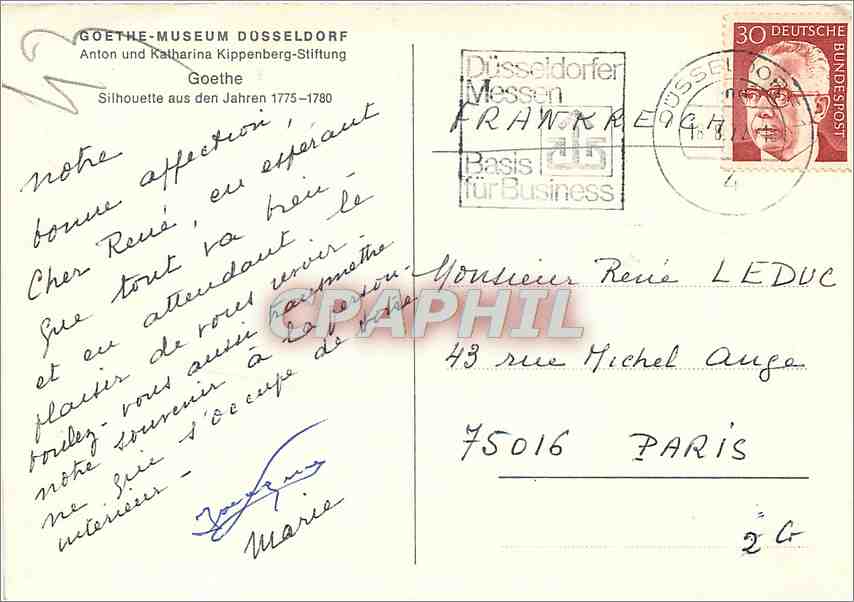 43
GOETHE-MUSEUM DÜSSELDORF
Anton und Katharina Kippenberg-Stiftung
Goethe
Silhouette aus den Jahren 1775–1780
notre
bonne affection,
Cher René, en espérant
que tout va bien -
et en attendant le
plaisir de vous revoir.
voulez-vous aussi transmettre
notre souvenir à la person-
ne qui s'occupe de votre
intérieur -
Marie
Düsseldorfer
Messen
Basis
für Business
DÜSSELDORF
4
30 DEUTSCHE
BUNDESPOST
FRANKREICH
Monsieur René LEDUC
43 rue Michel Ange
75016 PARIS
2 G
CPAPHIL